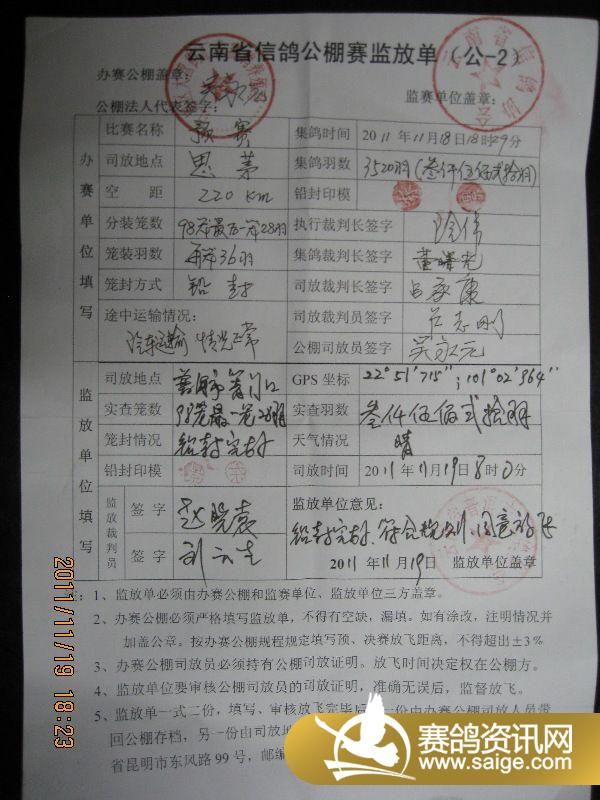 云南省信鸽公棚赛监放单（公-2）
办赛公棚盖章：
监赛单位盖章：
公棚法人代表签字：
办赛单位填写
比赛名称 预赛 集鸽时间 2011年11月18日18时29分
司放地点 思茅 集鸽羽数 3520羽(叁仟伍佰贰拾羽)
空距 220 Km 铅封印模
分装笼数 98笼最后一笼28羽 执行裁判长签字
笼装羽数 每笼36羽 集鸽裁判长签字 董曙光
笼封方式 铅封 司放裁判长签字 吕永康
途中运输情况： 司放裁判员签字 石志刚
汽车运输 情况正常 公棚司放员签字 吴永元
监放单位填写
司放地点 GPS 坐标 22°51′715″；101°02′964″
实查笼数 98笼最后一笼28羽 实查羽数 叁仟伍佰贰拾羽
笼封情况 铅封完好 天气情况 晴
铅封印模 司放时间 2011年11月19日8时0分
监放裁判员
签字 赵晓袁 监放单位意见：
铅封完好、符合规则、同意放飞
签字 刘云生 2011年11月19日 监放单位盖章
注：1、监放单必须由办赛公棚和监赛单位、监放单位三方盖章。
2、办赛公棚必须严格填写监放单，不得有空缺，漏填。如有涂改，注明情况并
加盖公章。按办赛公棚规程规定填写预、决赛放飞距离，不得超出±3％
3、办赛公棚司放员必须持有公棚司放证明。放飞时间决定权在公棚方。
4、监放单位要审核公棚司放员的司放证明，准确无误后，监督放飞。
5、监放单一式二份，填写、审核放飞完毕后 一份由办赛公棚司放人员带
回公棚存档，另一份由司放地
省昆明市东风路 99 号，邮编
2011/11/19 18:23
赛鸽资讯网
www.saige.com